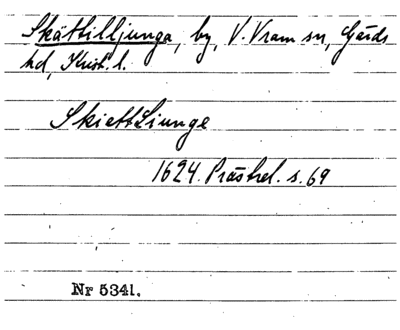 Skättilljunga, by, V. Vram sn, Gärds
hd, Krist. l.
SkiettLiunge
1624. Prästrel. s. 69
Nr 5341.